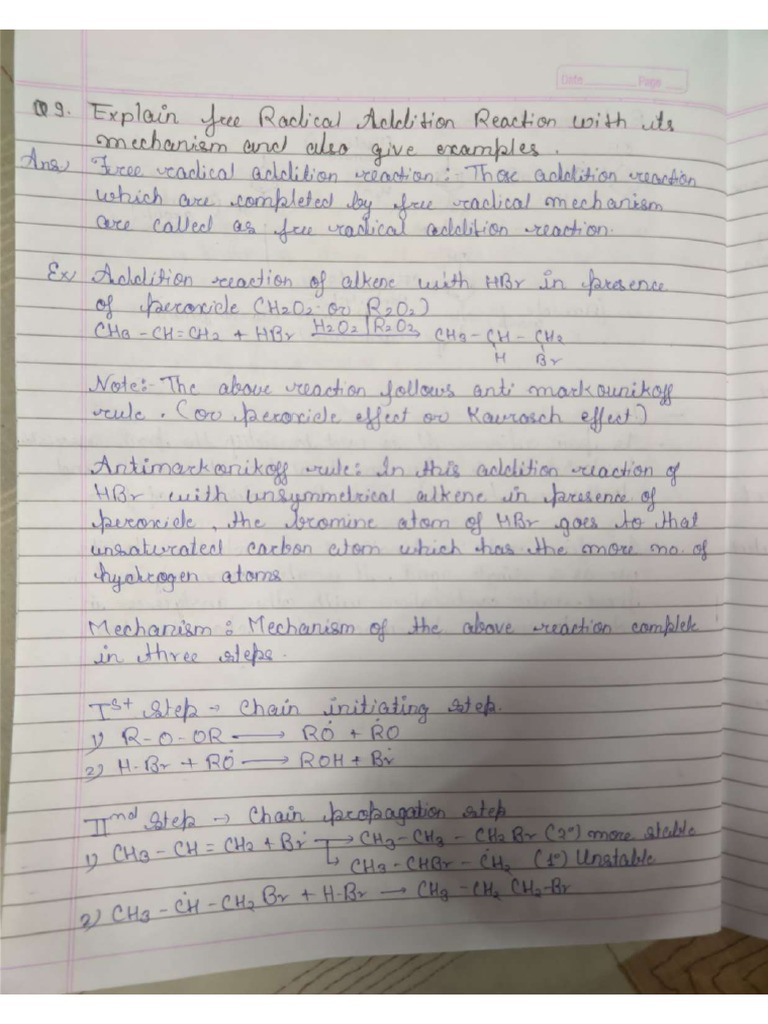 Date Page
Q 9. Explain free Radical Addition Reaction with its
mechanism and also give examples.
Ans) Free radical addition reaction :- Those addition reaction
which are completed by free radical mechanism
are called as free radical addition reaction.
Ex) Addition reaction of alkene with HBr in presence
of peroxide (H2O2 or R2O2)
CH3 - CH = CH2 + HBr H2O2 / R2O2 CH3 - CH - CH2
H Br
Note:- The above reaction follows anti markounikoff
rule. (or peroxide effect or Kaurasch effect)
Antimarkonikoff rule: In this addition reaction of
HBr with unsymmetrical alkene in presence of
peroxide, the bromine atom of HBr goes to that
unsaturated carbon atom which has the more no. of
hydrogen atoms
Mechanism : Mechanism of the above reaction complete
in three steps.
Ist step → Chain initiating step.
1) R-O-OR → RȮ + ṘO
2) H-Br + RȮ → ROH + Bṙ
IInd step → Chain propagation step
1) CH3 - CH = CH2 + Bṙ → CH3 - CH3 - CH2 Br (2°) more stable
↳ CH3 - CHBr - ĊH2 (1°) Unstable
2) CH3 - ĊH - CH2 Br + H-Br → CH3 - CH2 CH2-Br